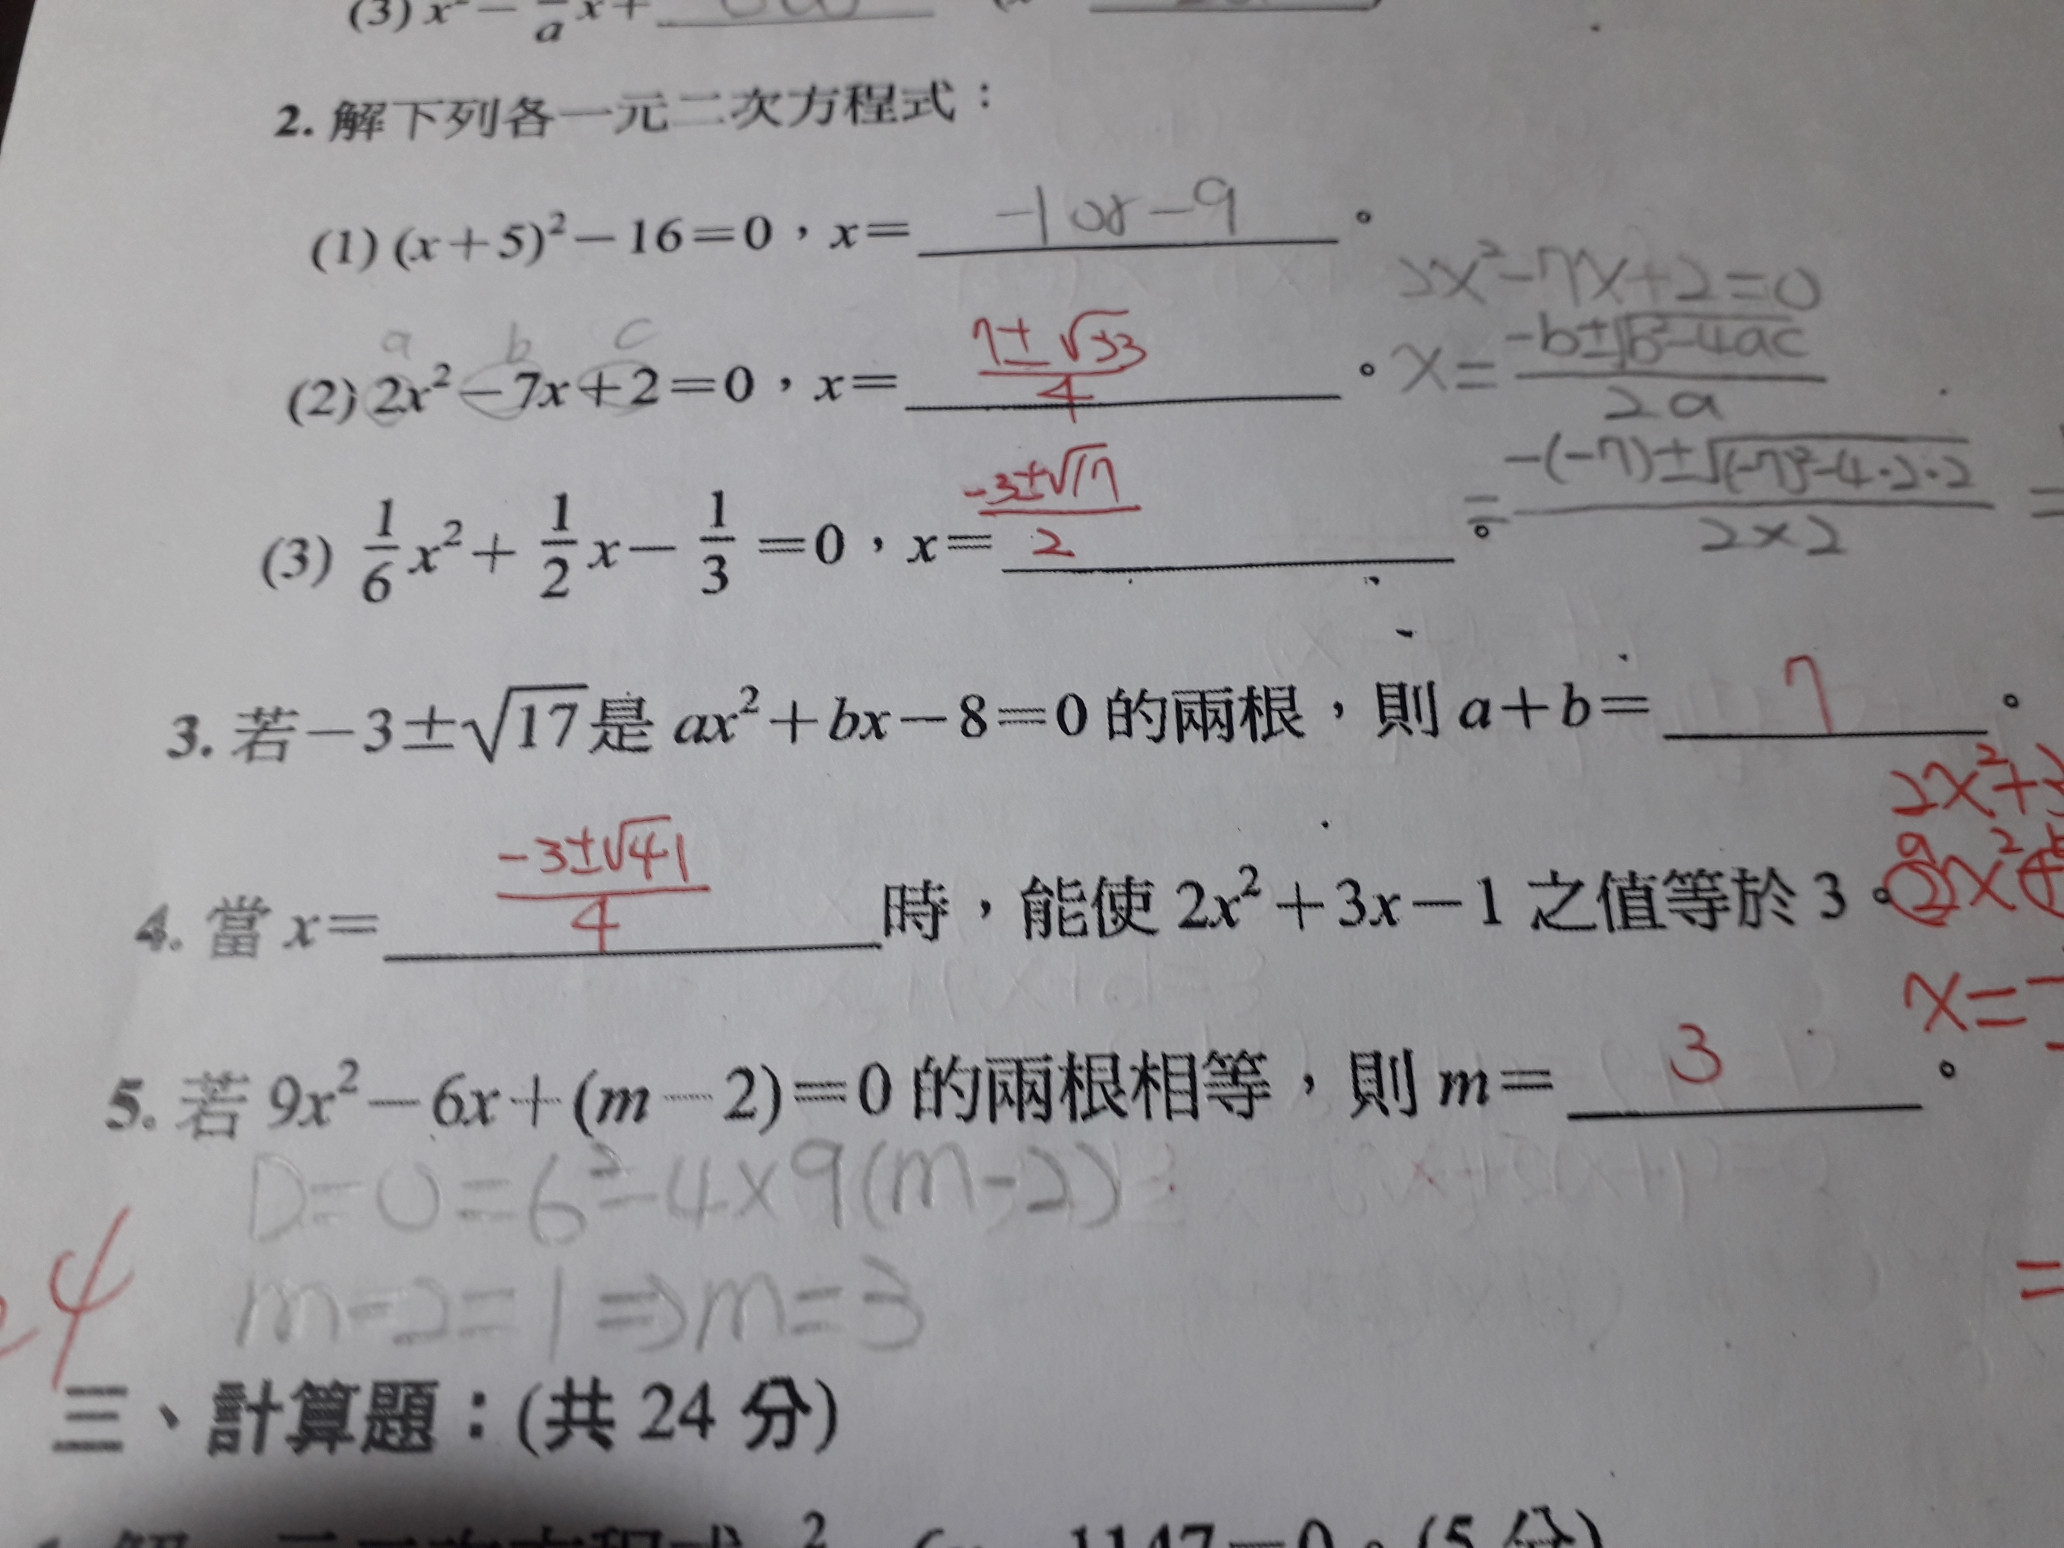 (3) x² − —/a x + ______
2. 解下列各一元二次方程式：
(1) (x+5)²−16=0，x= −1 or −9 。
2x²−7x+2=0
a b c
(2) 2x²−7x+2=0，x= (7±√33)/4 。 x= (−b±√(b²−4ac))/2a
= (−(−7)±√((−7)²−4·2·2))/(2×2) =
(3) 1/6 x²+ 1/2 x− 1/3 =0，x= (−3±√17)/2 。
3. 若−3±√17是 ax²+bx−8=0 的兩根，則 a+b= 7 。
2x²+3
4. 當 x= (−3±√41)/4 時，能使 2x²+3x−1 之值等於 3。
a b
2x²+
x= −
5. 若 9x²−6x+(m−2)=0 的兩根相等，則 m= 3 。
D=0=6²−4×9(m−2)
m−2=1⇒m=3
=
4
三、計算題：(共 24 分)
1147=0。(5 分)